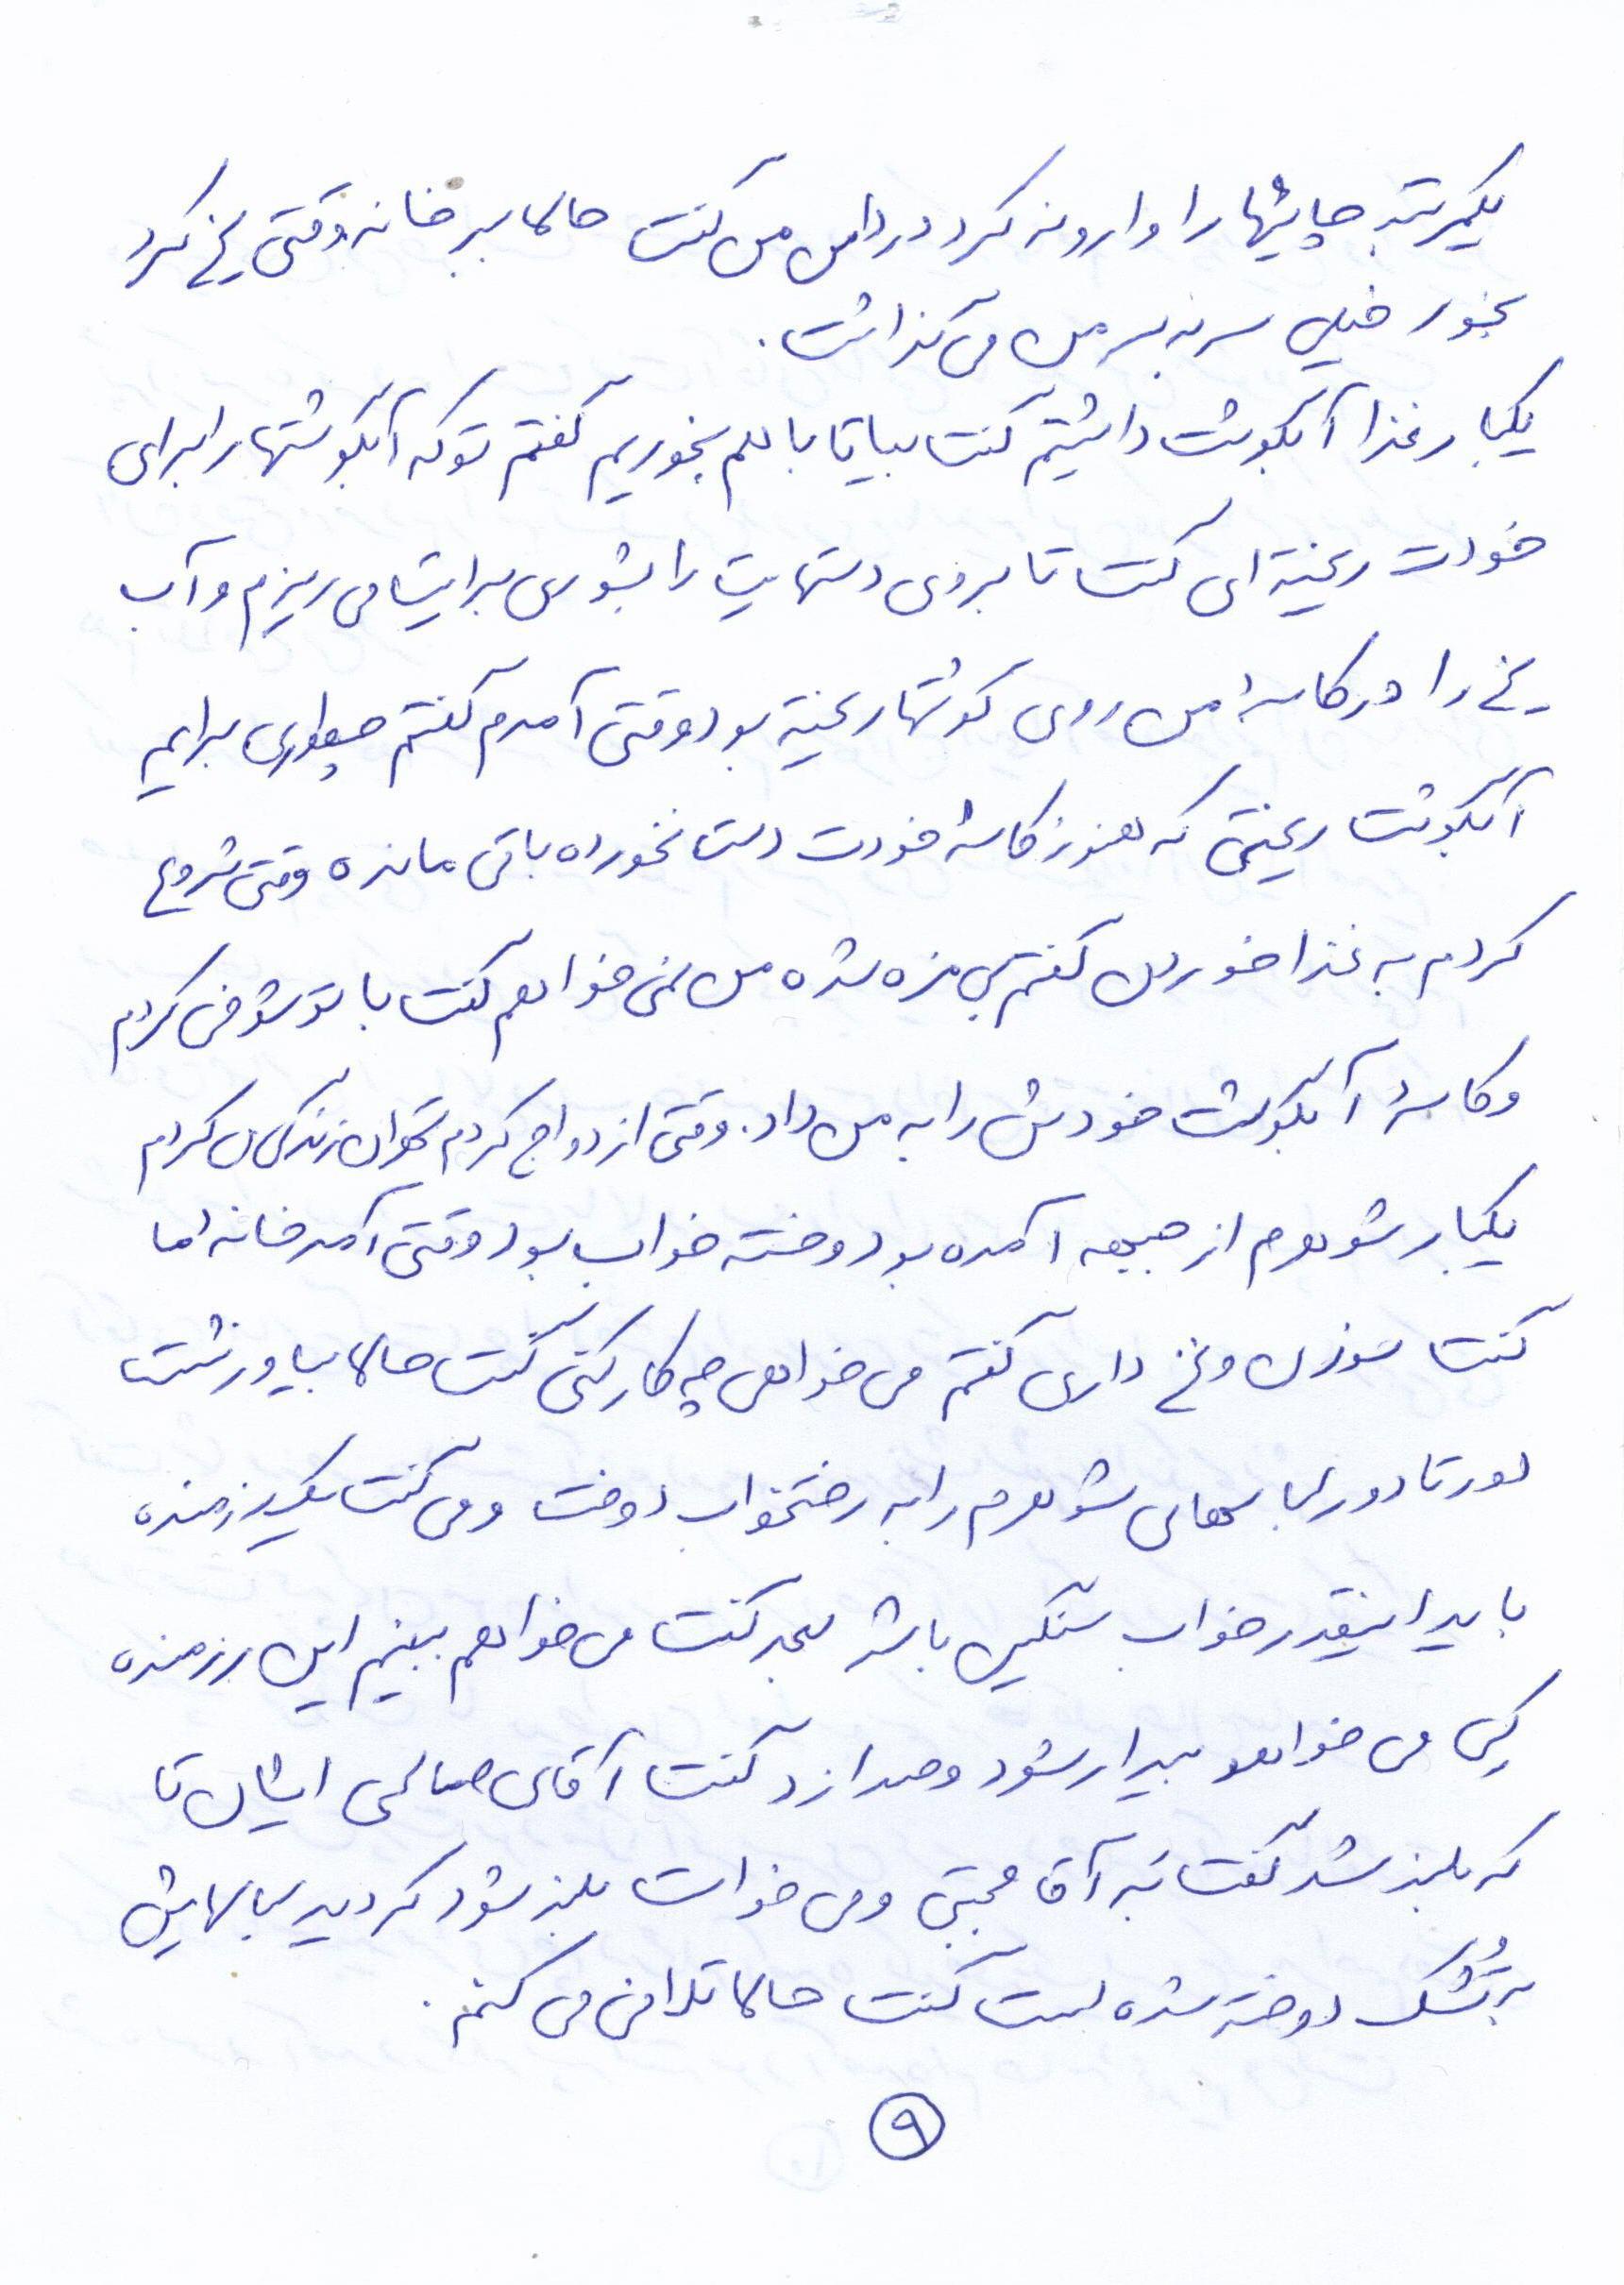 یکمرتبه چائیها را وارونه کرد در دامن من گفت حالا ببر خانه وقتی یخ کرد
بخور خیلی سربسر من می گذاشت.
یکبار غذا آبگوشت داشتیم گفت بیا تا با هم بخوریم گفتم تو که آبگوشتها را برای
خودت ریخته ای گفت تا بروی دستهایت را بشوری برایت می ریزم و آب
یخ را در کاسهٔ من روی گوشتها ریخته بود وقتی آمدم گفتم چطوری برایم
آبگوشت ریختی که هنوز کاسهٔ خودت دست نخورده باقی مانده وقتی شروع
کردم به غذا خوردن گفتم بی مزه شده من نمی خواهم گفت با تو شوخی کردم
و کاسهٔ آبگوشت خودش را به من داد. وقتی ازدواج کردم تهران زندگی می کردم
یکبار شوهرم از جبهه آمده بود و خسته خواب بود وقتی آمد خانه ما
گفت سوزن و نخ داری گفتم می خواهی چه کار کنی گفت حالا بیاور نشست
دور تا دور لباسهای شوهرم را به رختخواب دوخت و می گفت یک رزمنده
باید اینقدر خواب سنگین باشد بعد گفت می خواهم ببینم این رزمنده
کی می خواهد بیدار شود و صدا زد گفت آقای صالحی ایشان تا
که بلند شد گفت نه آقا مجتبی و می خواست بلند شود که دید لباسهایش
به تُشک دوخته شده است گفت حالا تلافی می کنم.
۹